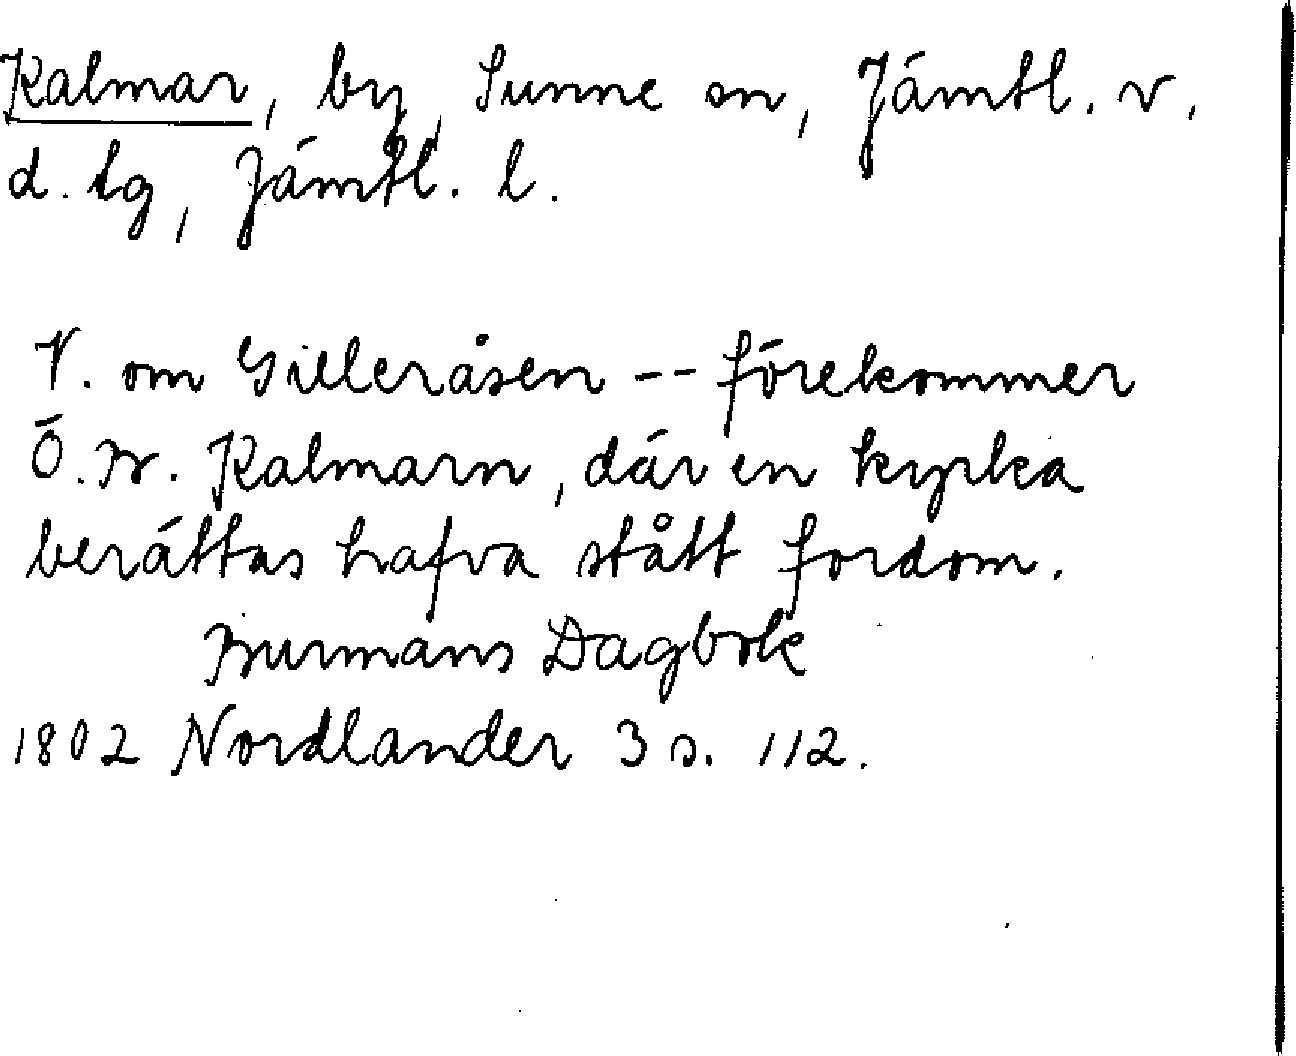 Kalmar, by, Sunne sn, Jämtl. v.
d. tg, Jämtl. l.
V. om Gilleråsen -- förekommer
Ö. N. Kalmarn, där en kyrka
berättas hafva stått fordom.
Burmans Dagbok
1802 Nordlander 3 s. 112.